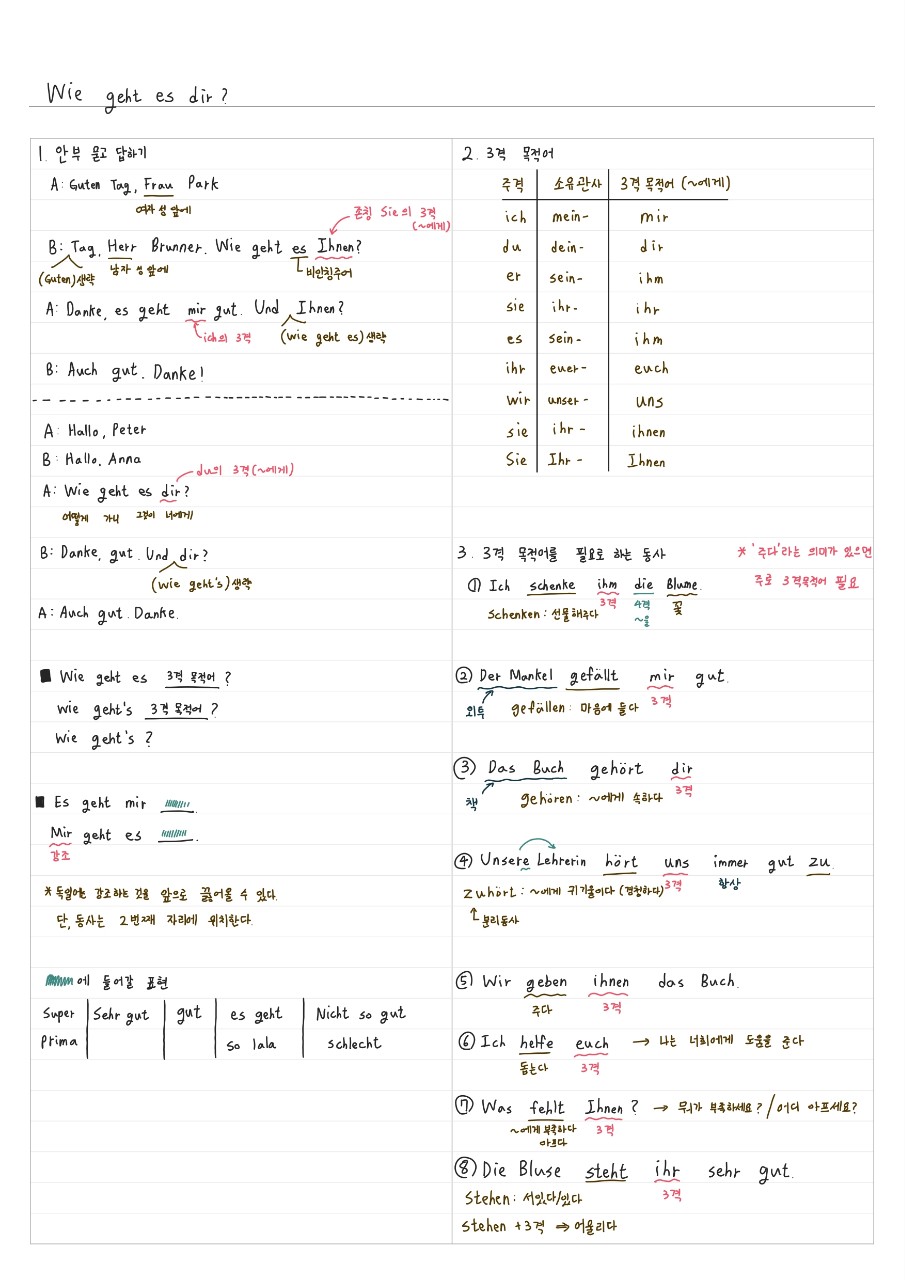 Wie geht es dir?
1. 안부 묻고 답하기
A: Guten Tag, Frau Park
여자 성 앞에
존칭 Sie의 3격
(~에게)
B: Tag, Herr Brunner. Wie geht es Ihnen?
(Guten)생략 남자 성 앞에 비인칭주어
A: Danke, es geht mir gut. Und Ihnen?
ich의 3격 (wie geht es)생략
B: Auch gut. Danke!
A: Hallo, Peter
B: Hallo, Anna
du의 3격(~에게)
A: Wie geht es dir?
어떻게 가니 그것이 너에게
B: Danke, gut. Und dir?
(wie geht's)생략
A: Auch gut. Danke.
■ Wie geht es 3격 목적어 ?
wie geht's 3격 목적어 ?
wie geht's ?
■ Es geht mir .
Mir geht es .
강조
* 독일어는 강조하는 것을 앞으로 끓어올 수 있다.
단, 동사는 2번째 자리에 위치한다.
에 들어갈 표현
Super Sehr gut gut es geht Nicht so gut
Prima so lala schlecht
2. 3격 목적어
주격 소유관사 3격 목적어 (~에게)
ich mein- mir
du dein- dir
er sein- ihm
sie ihr- ihr
es sein- ihm
ihr euer- euch
wir unser- uns
sie ihr- ihnen
Sie Ihr- Ihnen
3. 3격 목적어를 필요로 하는 동사
* '주다'라는 의미가 있으면
주로 3격목적어 필요
① Ich schenke ihm die Blume.
3격 4격 꽃
~을
Schenken: 선물해주다
② Der Mankel gefällt mir gut.
외투 gefällen: 마음에 들다 3격
③ Das Buch gehört dir
책 gehören: ~에게 속하다 3격
④ Unsere Lehrerin hört uns immer gut zu.
3격 항상
zuhört: ~에게 귀기울이다 (경청하다)
분리동사
⑤ Wir geben ihnen das Buch.
주다 3격
⑥ Ich helfe euch → 나는 너희에게 도움을 준다
돕는다 3격
⑦ Was fehlt Ihnen? → 뭐가 부족하세요? / 어디 아프세요?
~에게 부족하다 3격
아프다
⑧ Die Bluse steht ihr sehr gut.
3격
Stehen: 서있다/있다
stehen +3격 ⇒ 어울리다